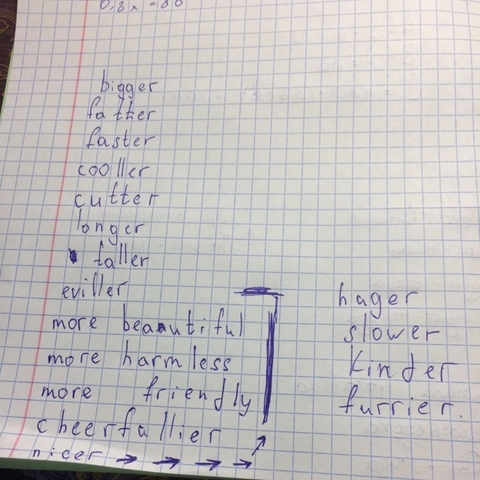 bigger
fatter
faster
cooller
cutter
longer
taller
eviller
more beautiful
more harmless
more friendly
cheerfallier
nicer → → → →
hager
slower
Kinder
furrier.